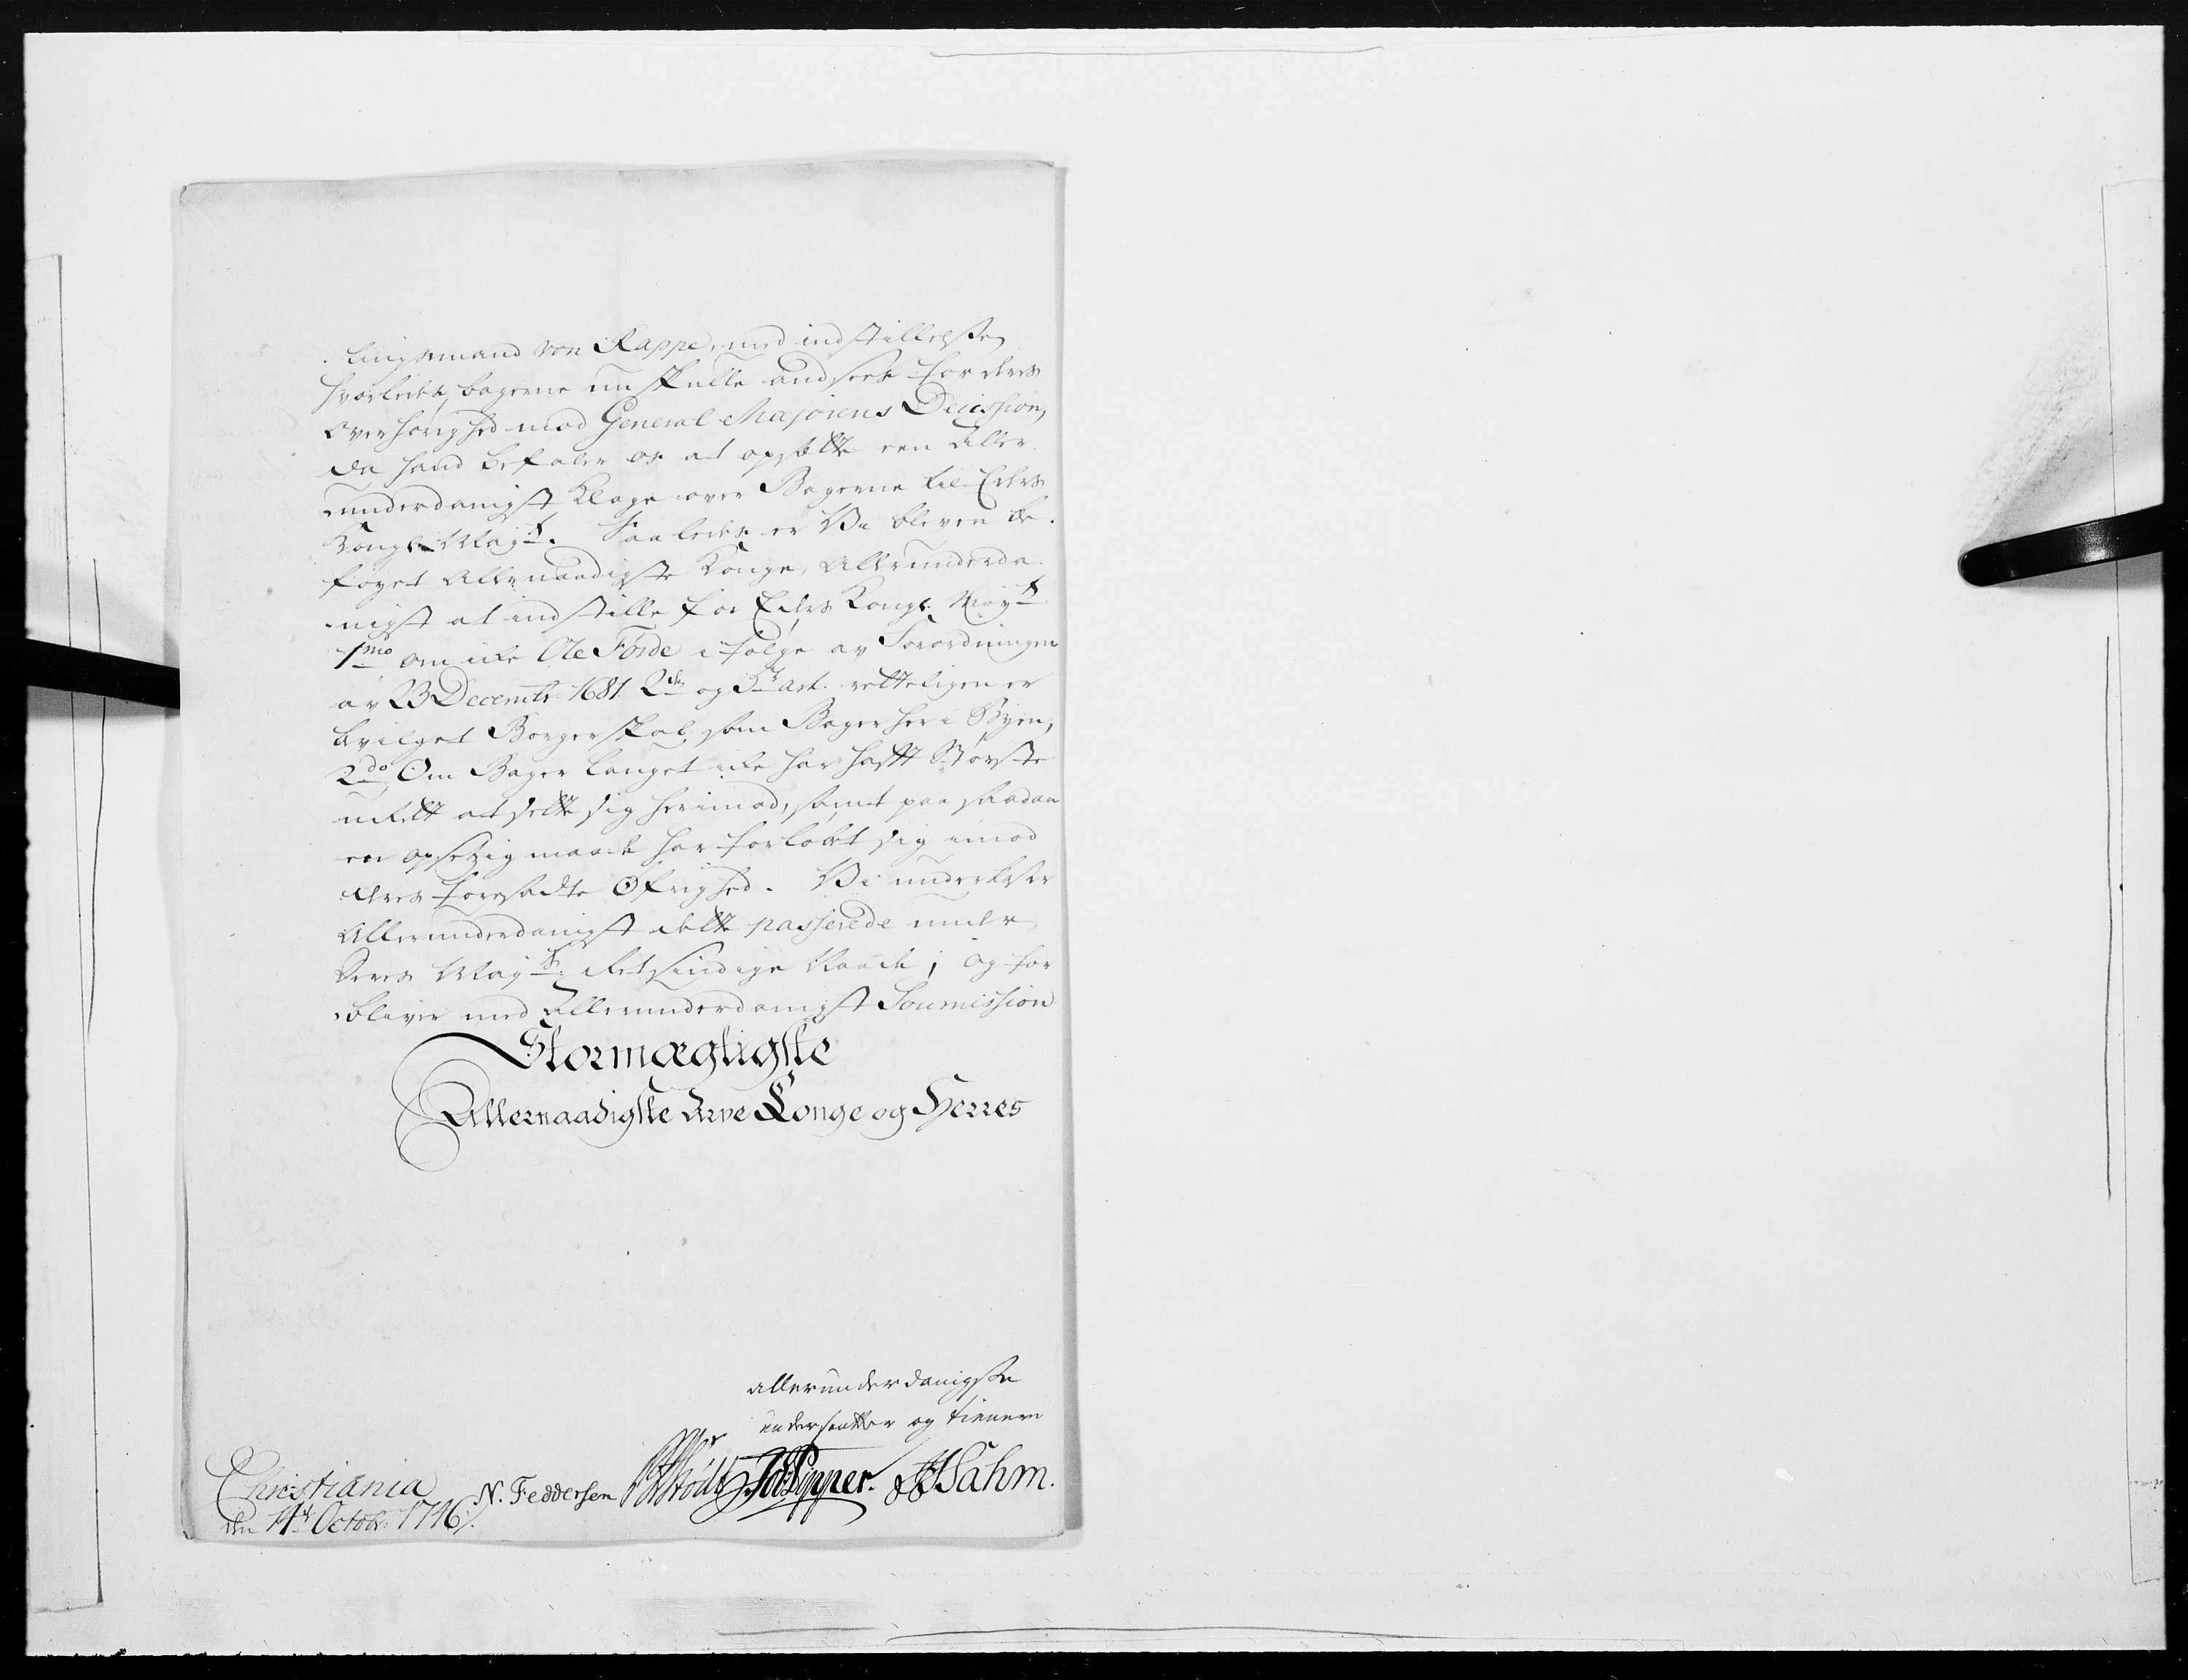 lingsmand von Rappe, med indstillelse
hvorledes bagerne nu skulle andsees for deres
Overhørighed mod General Majorens Decission,
da hand befaler os at opsette een Aller
underdanigst Klage over Bagerne til Eders
Kongl. Mayt. Saaledes er Vi bleven be-
føyet Allernaadigste Konge, Allerunderda-
nigst at indstille for Eders Kongl. Mayt
1mo om icke Ole Førde i følge av Forordningen
av 23 Decembr. 1681. 2den og 3die art. retteligen er
bevilget Borgerskab som Bager her i Byen,
2do Om Bager lauget icke har hafft Største
uRett at sette sig herimod, samt paa saadan
een opsetzig maade har forløbet sig imod
deres foresadte Øfrighed. Vi underkaster
Allerunderdanigst dette passerede under
Deres Mayts. Retsindige Naade; og for
bliver med Allerunderdanigst Soumission
Stormægtigste
Allernaadigste Arve Konge og Herres
allerunderdanigste
undersaatter og tienere
Christiania
den 14de Octobr: 1746.
N. Feddersen